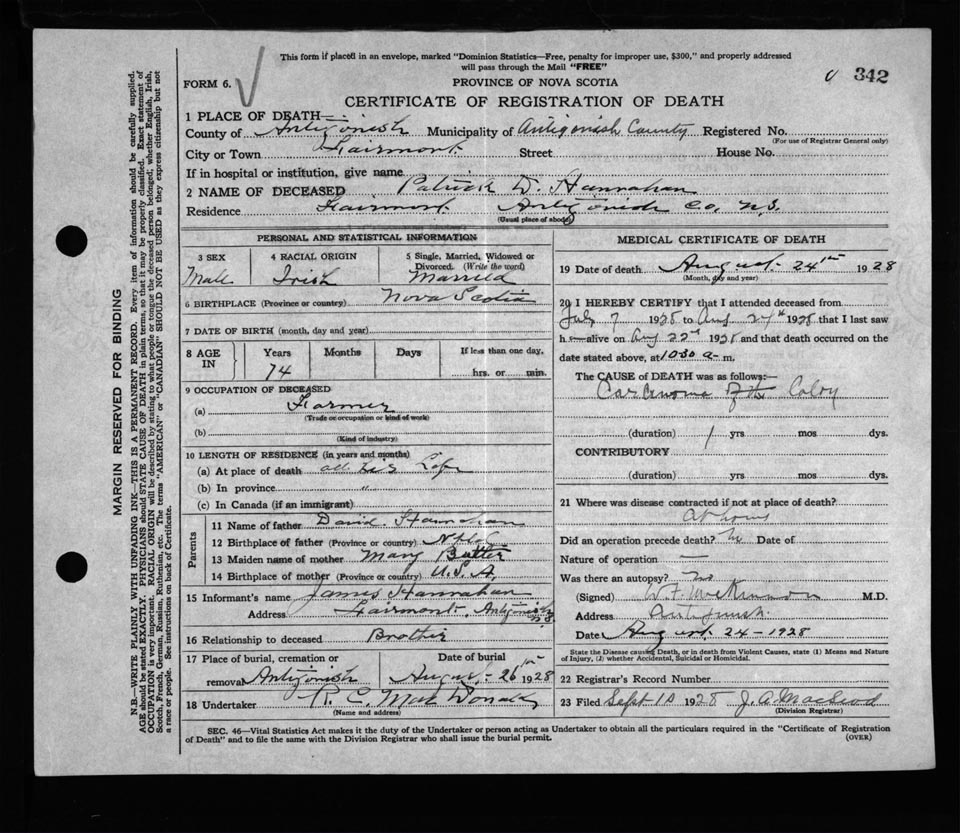 This form if placed in an envelope, marked "Dominion Statistics—Free, penalty for improper use, $300," and properly addressed
will pass through the Mail "FREE"
FORM 6.
PROVINCE OF NOVA SCOTIA
342
CERTIFICATE OF REGISTRATION OF DEATH
1 PLACE OF DEATH—
County of Antigonish Municipality of Antigonish County Registered No.
(For use of Registrar General only)
City or Town Fairmont Street House No.
If in hospital or institution, give name
2 NAME OF DECEASED Patrick D. Hanrahan
Residence Fairmont Antigonish Co. N.S.
(Usual place of abode)
PERSONAL AND STATISTICAL INFORMATION
3 SEX 4 RACIAL ORIGIN 5 Single, Married, Widowed or
Divorced. (Write the word)
Male Irish Married
6 BIRTHPLACE (Province or country) Nova Scotia
7 DATE OF BIRTH (month, day and year)
8 AGE IN Years Months Days If less than one day,
74 hrs. or min.
9 OCCUPATION OF DECEASED
(a) Farmer
(Trade or occupation or kind of work)
(b)
(Kind of industry)
10 LENGTH OF RESIDENCE (in years and months)
(a) At place of death all his Life
(b) In province "
(c) In Canada (if an immigrant)
Parents
11 Name of father David Hanrahan
12 Birthplace of father (Province or country)
13 Maiden name of mother Mary
14 Birthplace of mother (Province or country) U.S.A.
15 Informant's name James Hanrahan
Address Fairmont, Antigonish N.S.
16 Relationship to deceased Brother
17 Place of burial, cremation or Date of burial
removal Antigonish August 26th 1928
18 Undertaker R. C. MacDonald
(Name and address)
MEDICAL CERTIFICATE OF DEATH
19 Date of death August 24th 1928
(Month, day and year)
20 I HEREBY CERTIFY that I attended deceased from
July 7 1928 to Aug 24th 1928 that I last saw
h alive on Aug 22nd 1928 and that death occurred on the
date stated above, at 10:30 a m.
The CAUSE of DEATH was as follows:—
Carcinoma of the
(duration) 1 yrs mos dys.
CONTRIBUTORY
(duration) yrs mos dys.
21 Where was disease contracted if not at place of death?
At home
Did an operation precede death? No Date of
Nature of operation —
Was there an autopsy? No
(Signed) W. F. McKinnon M.D.
Address Antigonish
Date August 24-1928
State the Disease causing Death, or in death from Violent Causes, state (1) Means and Nature
of Injury, (2) whether Accidental, Suicidal or Homicidal.
22 Registrar's Record Number
23 Filed Sept 10 1928 J. A. MacLeod
(Division Registrar)
SEC. 46—Vital Statistics Act makes it the duty of the Undertaker or person acting as Undertaker to obtain all the particulars required in the "Certificate of Registration
of Death" and to file the same with the Division Registrar who shall issue the burial permit.
(OVER)
MARGIN RESERVED FOR BINDING
N.B.—WRITE PLAINLY WITH UNFADING INK—THIS IS A PERMANENT RECORD. Every item of information should be carefully supplied.
AGE should be stated EXACTLY. PHYSICIANS should STATE CAUSE OF DEATH in plain terms, so that it may be properly classified. Exact statement of
OCCUPATION is very important. RACIAL ORIGIN will be described by stating to what people or tongue the deceased person belonged; whether English, Irish,
Scotch, French, German, Russian, Ruthenian, etc. The terms "AMERICAN" or "CANADIAN" SHOULD NOT BE USED as they express citizenship but not
a race or people. See instructions on back of Certificate.